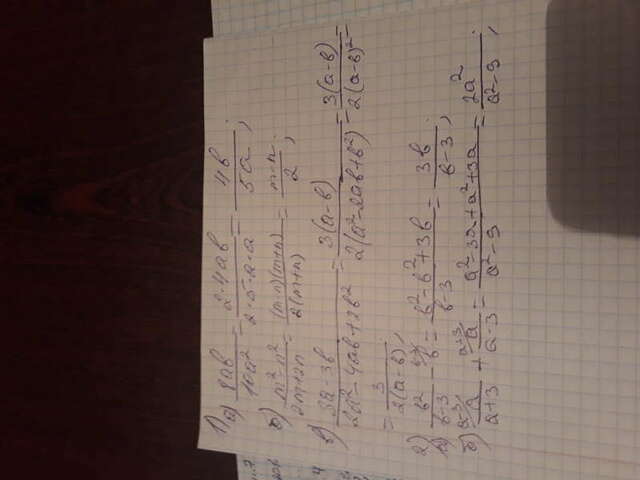 1) а) 8ab/10a² = 2·4ab/2·5·a·a = 4b/5a;
б) m²-n²/2m+2n = (m-n)(m+n)/2(m+n) = m-n/2;
в) 3a-3b/2a²-4ab+2b² = 3(a-b)/2(a²-2ab+b²) = 3(a-b)/2(a-b)² =
= 3/2(a-b);
2)
а) b²/b-3 - b-3/b = b²-b²+3b/b-3 = 3b/b-3;
б) a-3/a/a+3 + a+3/a/a-3 = a²-3a+a²+3a/a²-9 = 2a²/a²-9;